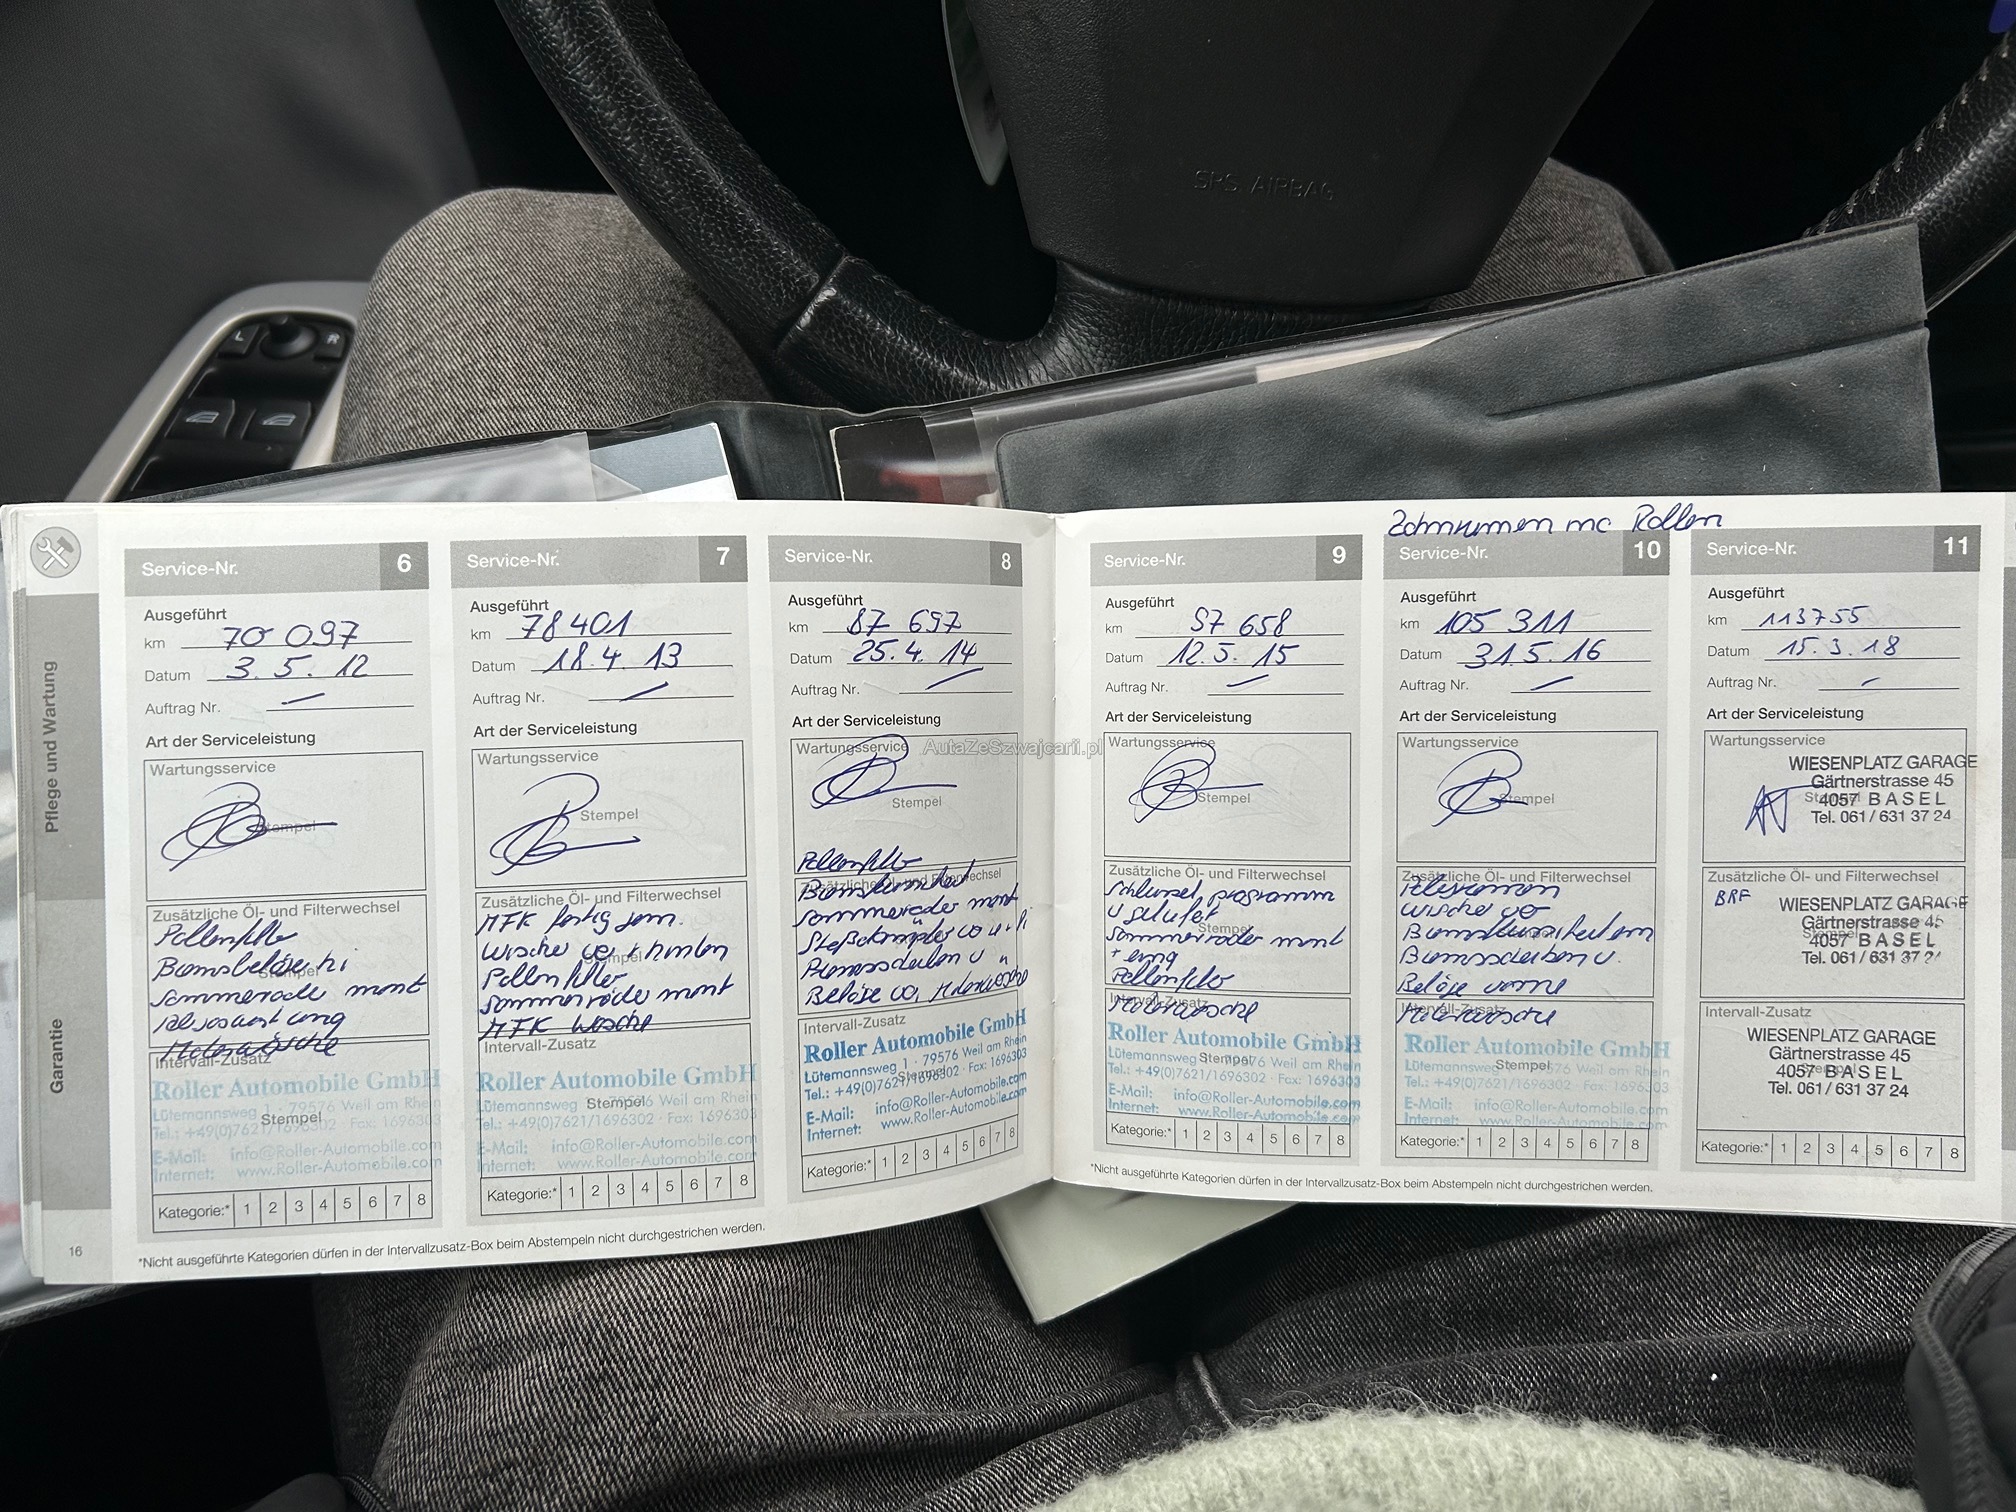 SRS AIRBAG
L R
Pflege und Wartung
Garantie
16
Service-Nr. 6
Ausgeführt
km 70 097
Datum 3. 5. 12
Auftrag Nr. —
Art der Serviceleistung
Wartungsservice
Stempel
Zusätzliche Öl- und Filterwechsel
Pollenfilter
Bremsbeläge hi
Stempel
Sommerräder mont
Motorwäsche
Intervall-Zusatz
Roller Automobile GmbH
Lütemannsweg 79576 Weil am Rhein
Stempel
Tel.: +49(0)7621/1696302 · Fax: 1696303
E-Mail: info@Roller-Automobile.com
Internet: www.Roller-Automobile.com
Kategorie:* 1 2 3 4 5 6 7 8
Service-Nr. 7
Ausgeführt
km 78401
Datum 18. 4. 13
Auftrag Nr. —
Art der Serviceleistung
Wartungsservice
Stempel
Zusätzliche Öl- und Filterwechsel
MFK fertig
wischer vo + hinten
Stempel
Pollenfilter
Sommerräder mont
MFK Wäsche
Intervall-Zusatz
Roller Automobile GmbH
Lütemannsweg 79576 Weil am Rhein
Stempel
Tel.: +49(0)7621/1696302 · Fax: 1696303
E-Mail: info@Roller-Automobile.com
Internet: www.Roller-Automobile.com
Kategorie:* 1 2 3 4 5 6 7 8
Service-Nr. 8
Ausgeführt
km 87 697
Datum 25. 4. 14
Auftrag Nr. —
Art der Serviceleistung
Wartungsservice
Stempel
Pollenfilter
Zusätzliche Öl- und Filterwechsel
Sommerräder mont
Stoßdämpfer vo u hi
Bremsscheiben u
Beläge vo, Motorwäsche
Intervall-Zusatz
Roller Automobile GmbH
Lütemannsweg 1 · 79576 Weil am Rhein
Stempel
Tel.: +49(0)7621/1696302 · Fax: 1696303
E-Mail: info@Roller-Automobile.com
Internet: www.Roller-Automobile.com
Kategorie:* 1 2 3 4 5 6 7 8
*Nicht ausgeführte Kategorien dürfen in der Intervallzusatz-Box beim Abstempeln nicht durchgestrichen werden.
AutaZeSzwajcarii.pl
Service-Nr. 9
Ausgeführt
km 97 658
Datum 12. 5. 15
Auftrag Nr. —
Art der Serviceleistung
Wartungsservice
Stempel
Zusätzliche Öl- und Filterwechsel
Schlüssel programm
Stempel
Sommerräder mont
Pollenfilter
Intervall-Zusatz
Motorwäsche
Roller Automobile GmbH
Lütemannsweg 79576 Weil am Rhein
Stempel
Tel.: +49(0)7621/1696302 · Fax: 1696303
E-Mail: info@Roller-Automobile.com
Internet: www.Roller-Automobile.com
Kategorie:* 1 2 3 4 5 6 7 8
Zahnriemen Rollen
Service-Nr. 10
Ausgeführt
km 105 311
Datum 31. 5. 16
Auftrag Nr. —
Art der Serviceleistung
Wartungsservice
Stempel
Zusätzliche Öl- und Filterwechsel
wischer vo
Stempel
Bremsscheiben u.
Beläge vorne
Intervall-Zusatz
Motorwäsche
Roller Automobile GmbH
Lütemannsweg 79576 Weil am Rhein
Stempel
Tel.: +49(0)7621/1696302 · Fax: 1696303
E-Mail: info@Roller-Automobile.com
Internet: www.Roller-Automobile.com
Kategorie:* 1 2 3 4 5 6 7 8
Service-Nr. 11
Ausgeführt
km 113755
Datum 15. 3. 18
Auftrag Nr. —
Art der Serviceleistung
Wartungsservice
WIESENPLATZ GARAGE
Gärtnerstrasse 45
Stempel
4057 BASEL
Tel. 061 / 631 37 24
Zusätzliche Öl- und Filterwechsel
BRF
WIESENPLATZ GARAGE
Gärtnerstrasse 45
Stempel
4057 BASEL
Tel. 061 / 631 37 24
Intervall-Zusatz
WIESENPLATZ GARAGE
Gärtnerstrasse 45
Stempel
4057 BASEL
Tel. 061 / 631 37 24
Kategorie:* 1 2 3 4 5 6 7 8
*Nicht ausgeführte Kategorien dürfen in der Intervallzusatz-Box beim Abstempeln nicht durchgestrichen werden.